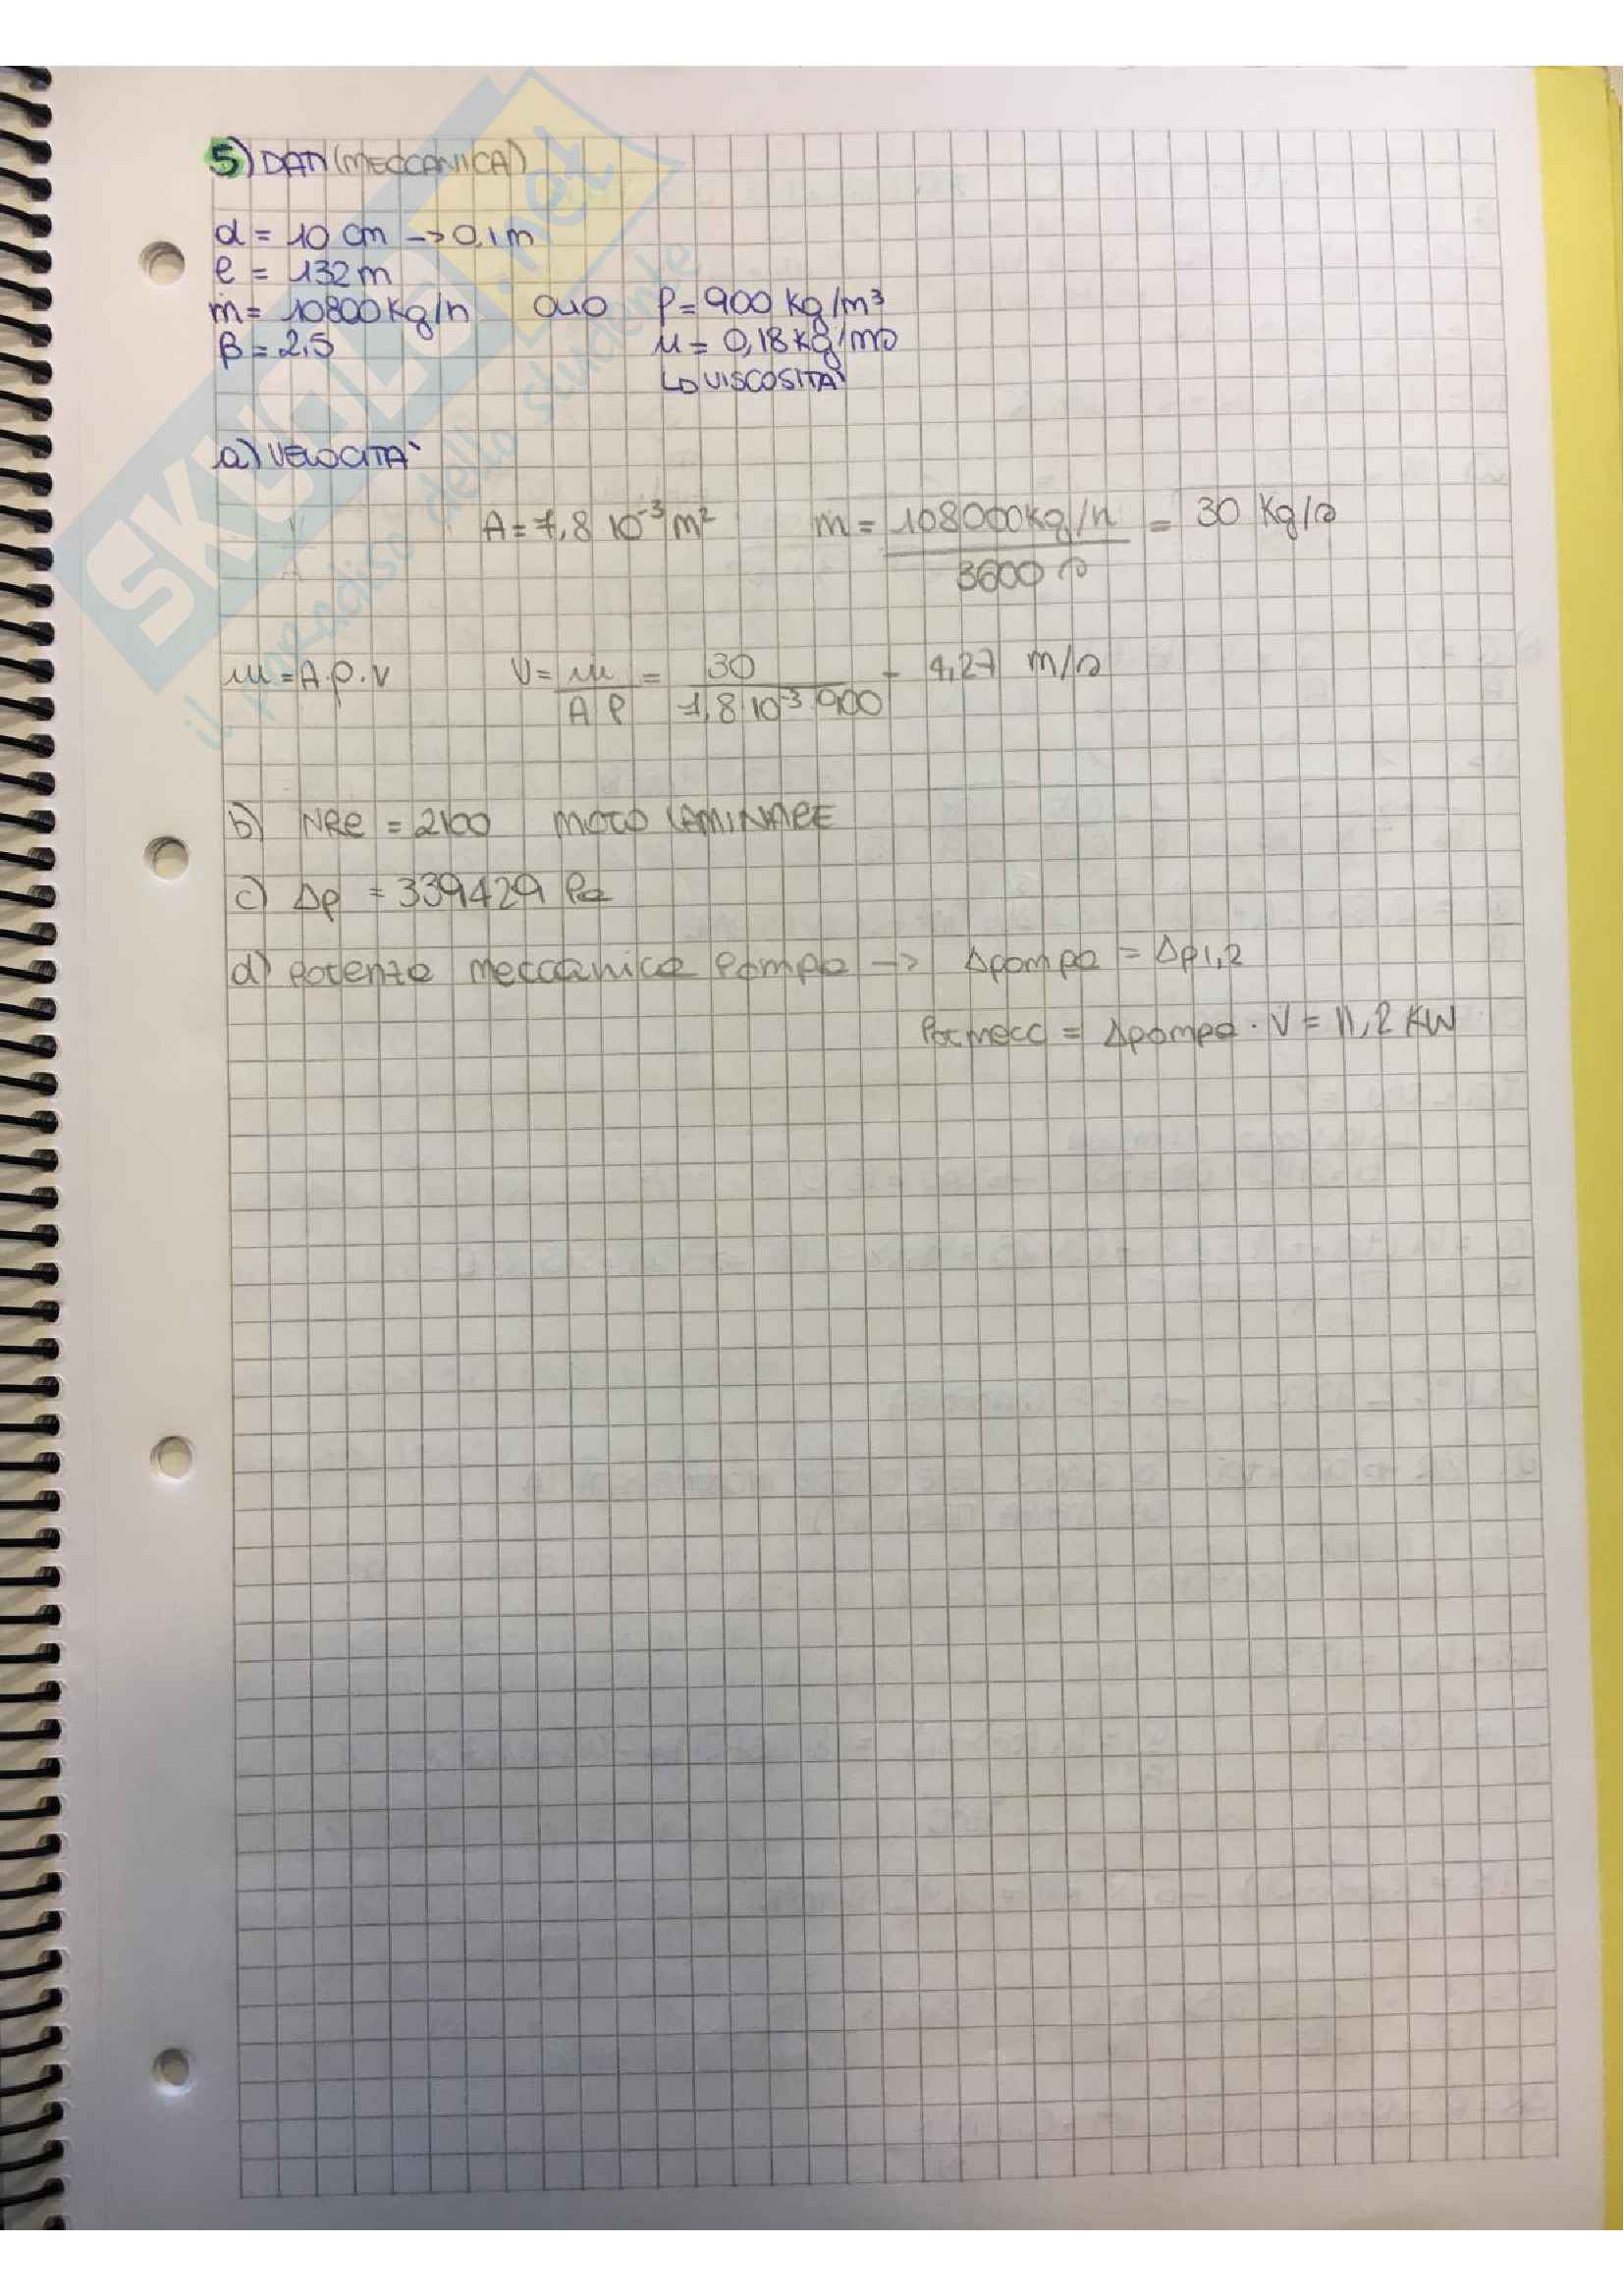 5) DATI (MECCANICA)
d = 10 cm -> 0,1 m
l = 132 m
ṁ = 10800 Kg/h OLIO ρ = 900 Kg/m³
β = 2,5 μ = 0,18 Kg/ms
↳ VISCOSITÀ
a) VELOCITÀ
A = 7,8 10⁻³ m² ṁ = 108000 Kg/h / 3600 s = 30 Kg/s
ṁ = A·ρ·v V = ṁ / A ρ = 30 / 7,8 10⁻³ 900 = 4,27 m/s
b) NRe = 2100 MOTO LAMINARE
c) Δp = 339429 Pa
d) Potenza meccanica Pompa -> Δpompa = Δp1,2
Potmecc = Δpompa · V = 11,2 KW
SKUOLA.net
il paradiso dello studente